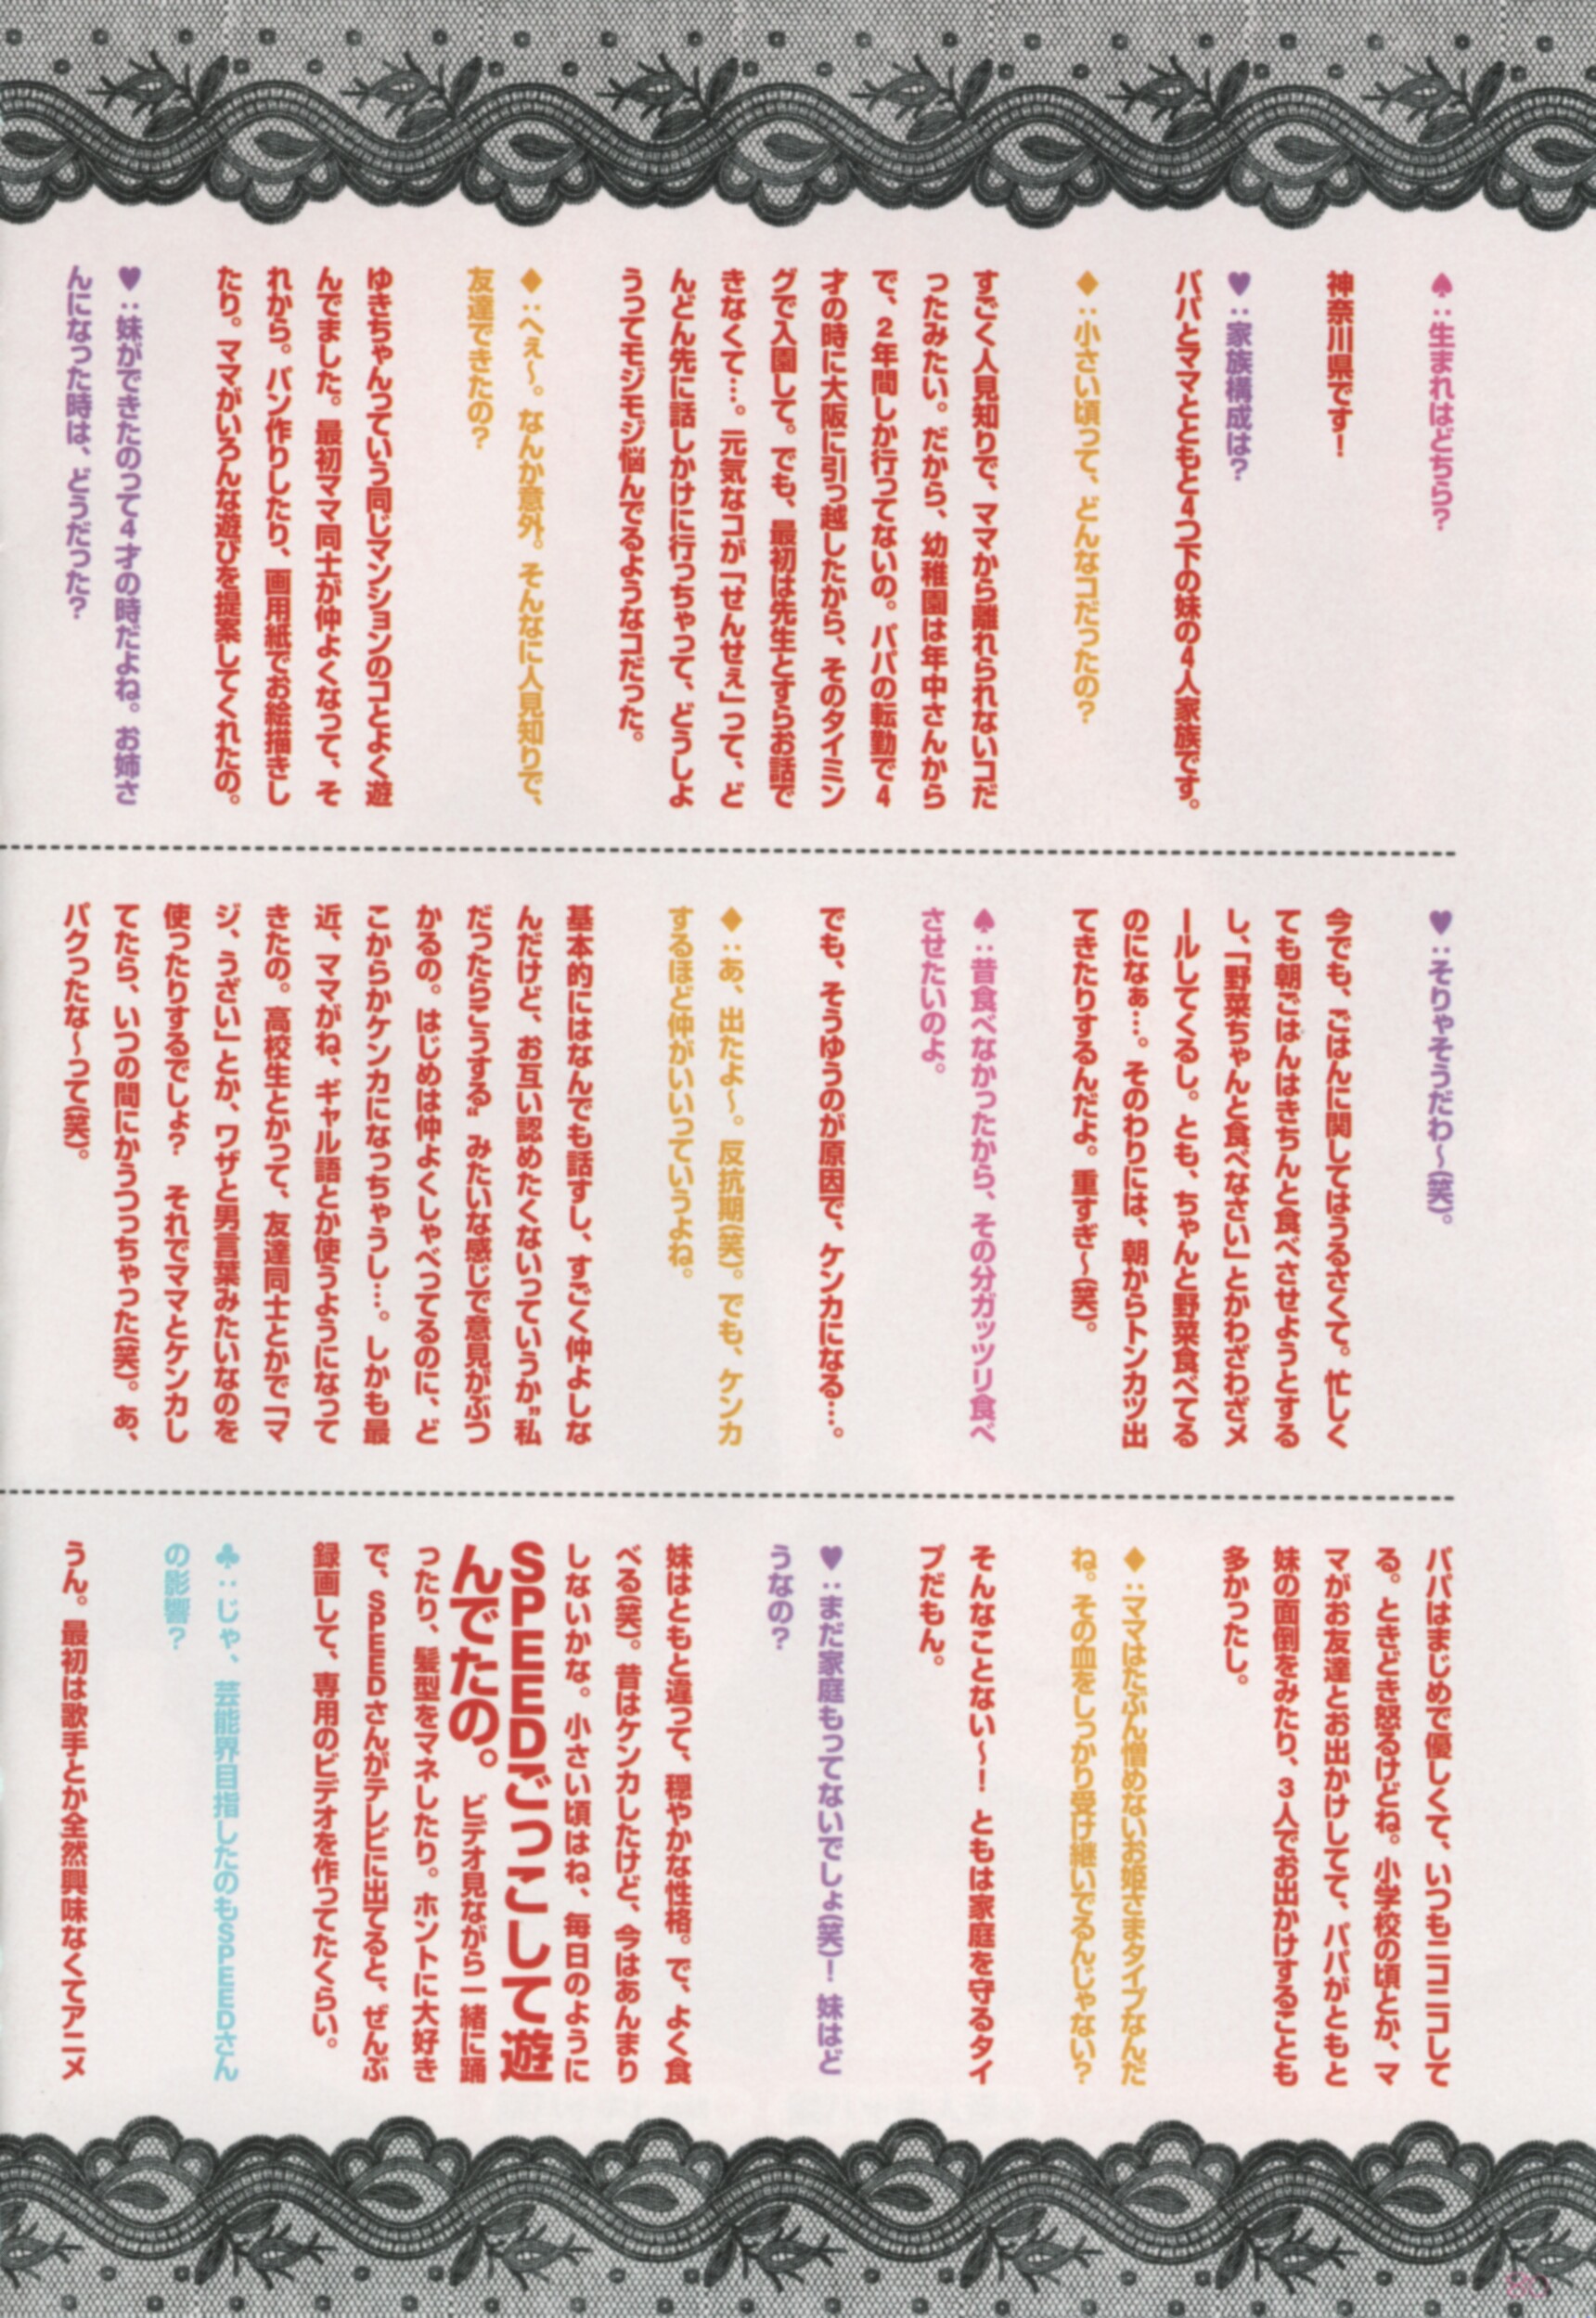 ♠：生まれはどちら？
神奈川県です！
♥：家族構成は？
パパとママとともと4つ下の妹の4人家族です。
♦：小さい頃って、どんなコだったの？
すごく人見知りで、ママから離れられないコだ
ったみたい。だから、幼稚園は年中さんから
で、2年間しか行ってないの。パパの転勤で4
才の時に大阪に引っ越したから、そのタイミン
グで入園して。でも、最初は先生とすらお話で
きなくて…。元気なコが「せんせぇ」って、ど
んどん先に話しかけに行っちゃって、どうしよ
うってモジモジ悩んでるようなコだった。
♦：へぇ〜。なんか意外。そんなに人見知りで、
友達できたの？
ゆきちゃんっていう同じマンションのコとよく遊
んでました。最初ママ同士が仲よくなって、そ
れから。パン作りしたり、画用紙でお絵描きし
たり。ママがいろんな遊びを提案してくれたの。
♥：妹ができたのって4才の時だよね。お姉さ
んになった時は、どうだった？
♥：そりゃそうだわ〜(笑)。
今でも、ごはんに関してはうるさくて。忙しく
ても朝ごはんはきちんと食べさせようとする
し、「野菜ちゃんと食べなさい」とかわざわざメ
ールしてくるし。とも、ちゃんと野菜食べてる
のになぁ…。そのわりには、朝からトンカツ出
てきたりするんだよ。重すぎ〜(笑)。
♠：昔食べなかったから、その分ガッツリ食べ
させたいのよ。
でも、そうゆうのが原因で、ケンカになる…。
♦：あ、出たよ〜。反抗期(笑)。でも、ケンカ
するほど仲がいいっていうよね。
基本的にはなんでも話すし、すごく仲よしな
んだけど、お互い認めたくないっていうか“私
だったらこうする”みたいな感じで意見がぶつ
かるの。はじめは仲よくしゃべってるのに、ど
こからかケンカになっちゃうし…。しかも最
近、ママがね、ギャル語とか使うようになって
きたの。高校生とかって、友達同士とかで「マ
ジ、うざい」とか、ワザと男言葉みたいなのを
使ったりするでしょ？　それでママとケンカし
てたら、いつの間にかうつっちゃった(笑)。あ、
パクったな〜って(笑)。
パパはまじめで優しくて、いつもニコニコして
る。ときどき怒るけどね。小学校の頃とか、マ
マがお友達とお出かけしてて、パパがともと
妹の面倒をみたり、3人でお出かけすることも
多かったし。
♦：ママはたぶん憎めないお姫さまタイプなんだ
ね。その血をしっかり受け継いでるんじゃない？
そんなことない〜！　ともは家庭を守るタイ
プだもん。
♥：まだ家庭もってないでしょ(笑)！　妹はど
うなの？
妹はともと違って、穏やかな性格。で、よく食
べる(笑)。昔はケンカしたけど、今はあんまり
しないかな。小さい頃はね、毎日のように
SPEEDごっこして遊
んでたの。ビデオ見ながら一緒に踊
ったり、髪型をマネしたり。ホントに大好き
で、SPEEDさんがテレビに出てると、ぜんぶ
録画して、専用のビデオを作ってたくらい。
♣：じゃ、芸能界目指したのもSPEEDさん
の影響？
うん。最初は歌手とか全然興味なくてアニメ